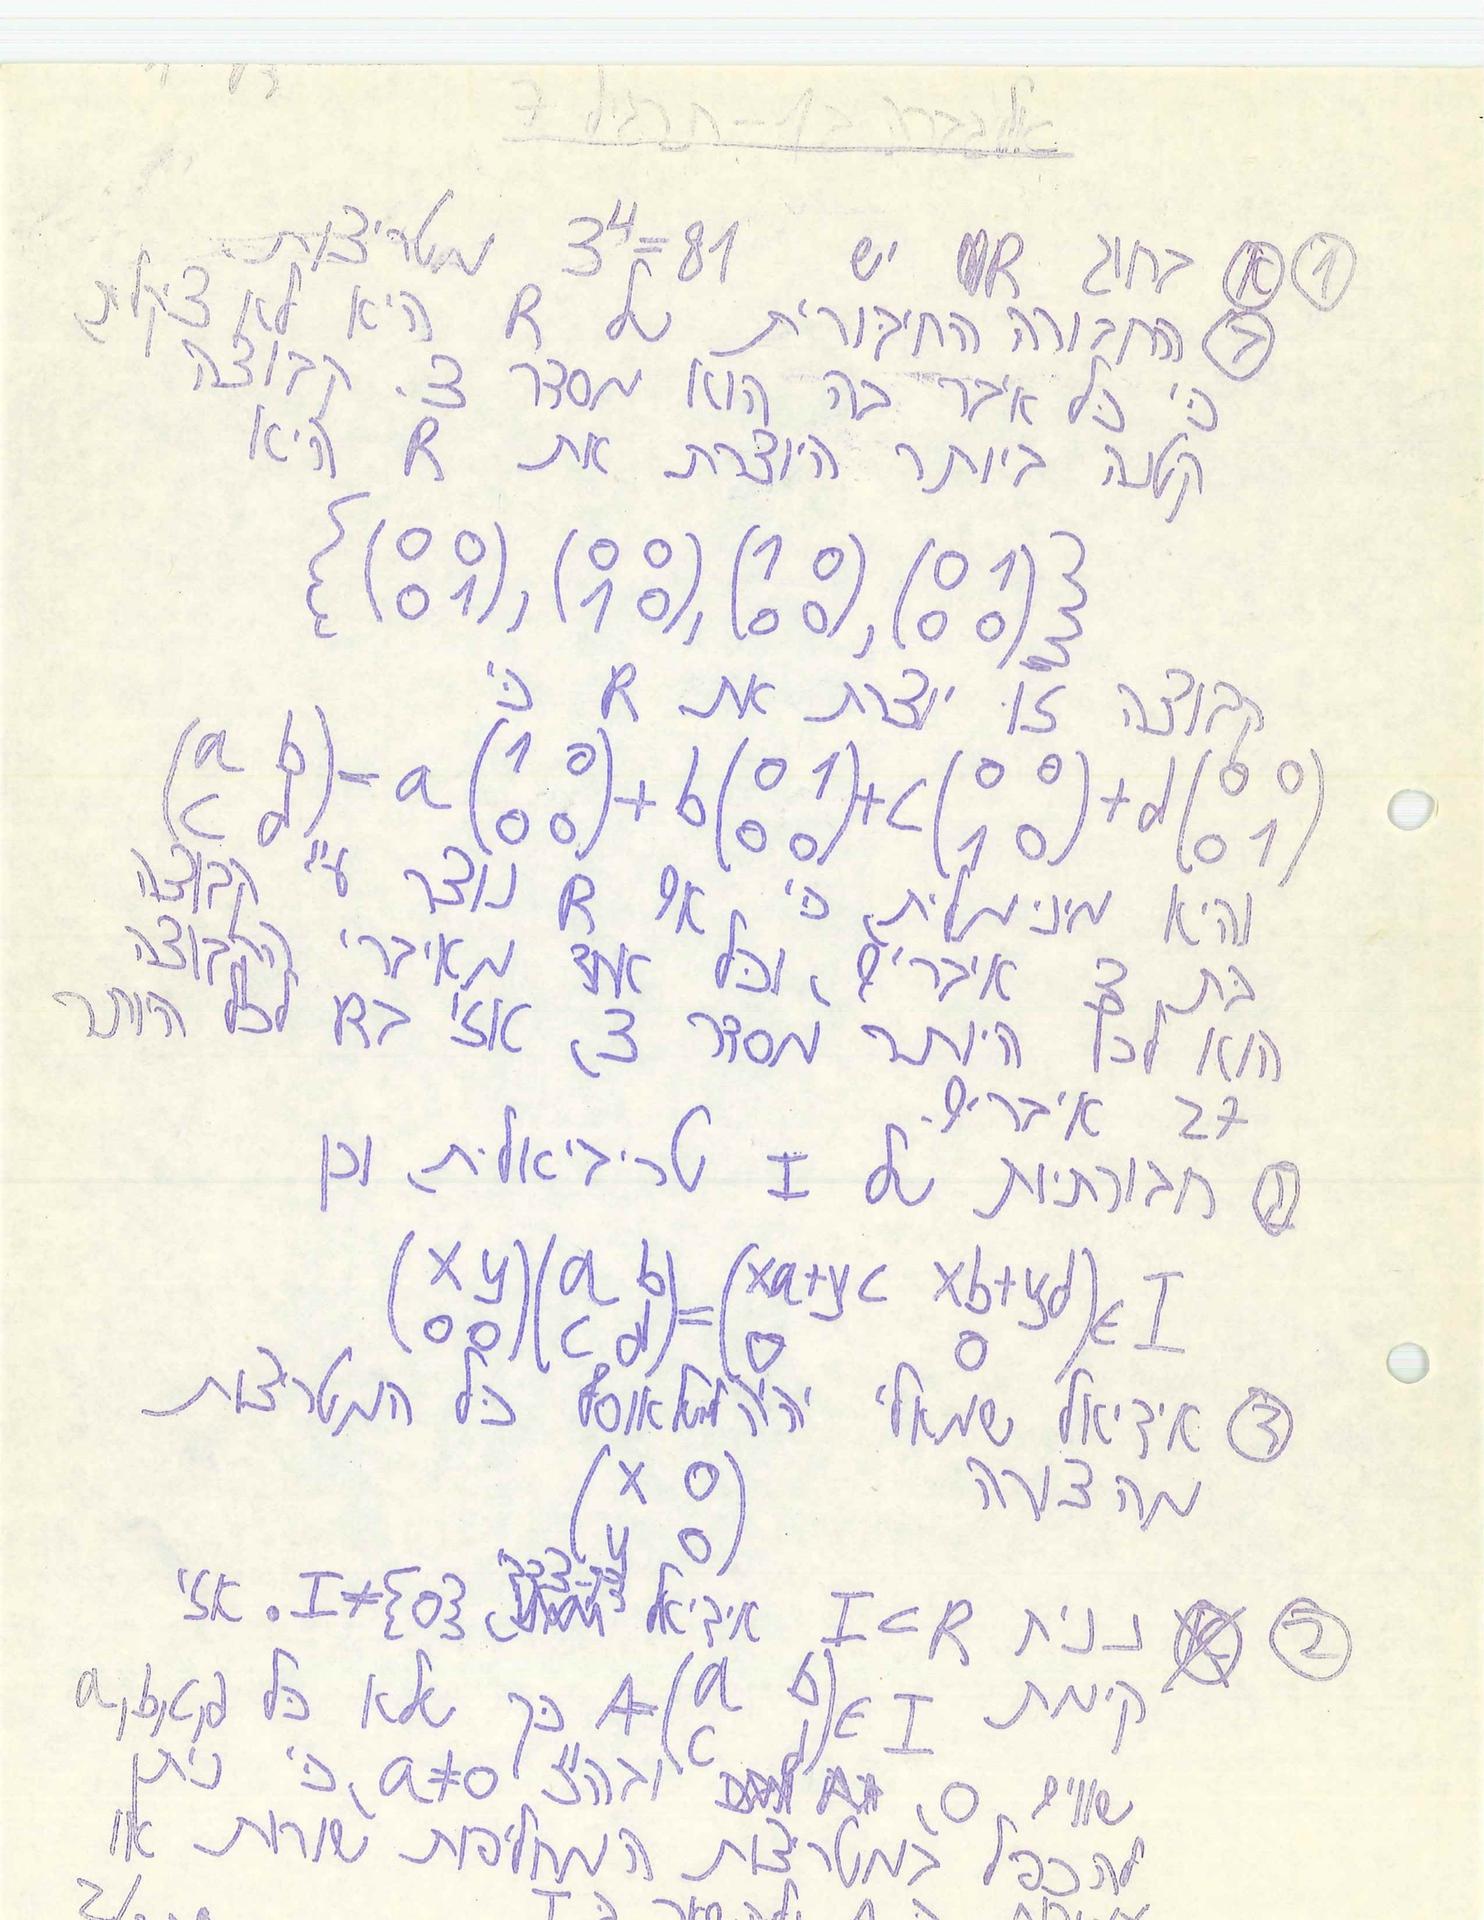 אלגברה ב1 - תרגיל 7
① א בחוג R יש 3⁴=81 מטריצות.
ב החבורה החיבורית של R היא לא ציקלית
כי כל איבר בה הוא מסדר 3. קבוצה
קטנה ביותר היוצרת את R היא
{(0 0 / 0 1), (0 0 / 1 0), (1 0 / 0 0), (0 1 / 0 0)}
קבוצה זו יוצרת את R כי
(a b / c d) = a(1 0 / 0 0) + b(0 1 / 0 0) + c(0 0 / 1 0) + d(0 0 / 0 1)
והיא מינימלית, כי אם R נוצר ע"י קבוצה
בת 3 איברים, וכל אחד מאיברי הקבוצה
הוא לכל היותר מסדר 3, אזי בR לכל היותר
27 איברים.
ג חבורתיות של I טריביאלית, וכן
(x y / 0 0)(a b / c d) = (xa+yc xb+yd / 0 0) ∈ I
ד אידיאל שמאלי יהיה אוסף כל המטריצות
מהצורה
(x 0 / y 0)
② נניח I⊂R אידיאל, {0}≠I. אזי
קיימת A=(a b / c d)∈I כך שלא כל a,b,c,d
שווים 0, ובה"כ a≠0, כי ניתן
להכפיל במטריצות המחליפות שורות או